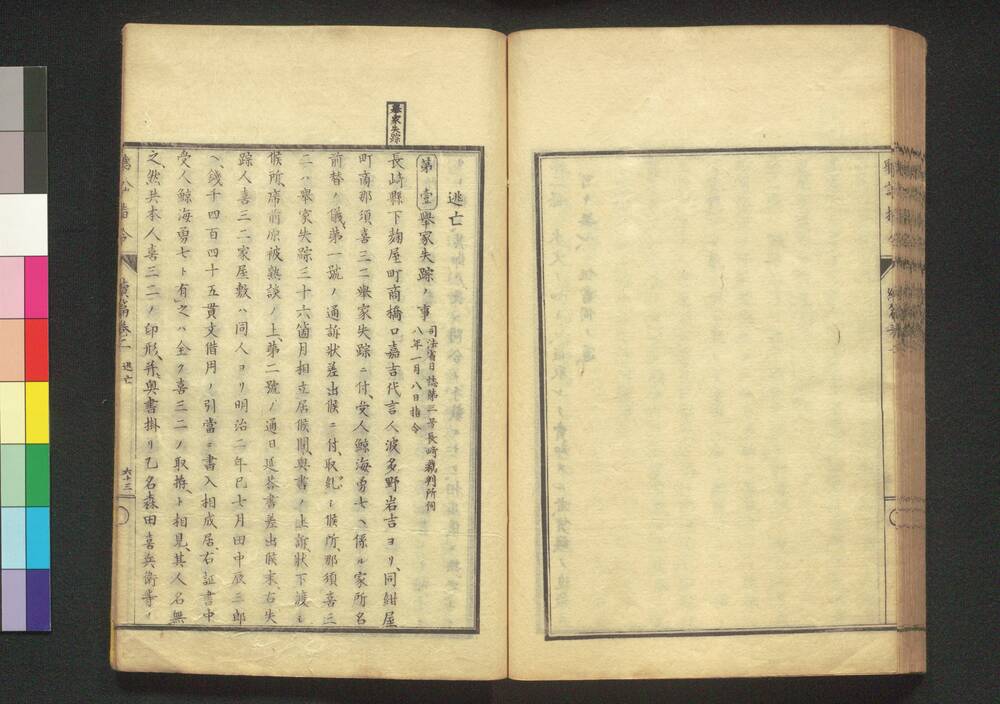 擧家失踪
逃亡
第壹 擧家失踪ノ事 司法省日誌第二号長崎裁判所伺
八年一月八日指令
長崎縣下麹屋町商橋口嘉吉代言人波多野岩吉ヨリ、同紺屋
町商那須喜三二擧家失踪ニ付、受人鯨海勇七ヘ係ル家所名
前替ノ儀、第一號ノ通訴状差出候ニ付、取糺シ候所、那須喜三
二ハ擧家失踪三十六箇月相立居候間、奥書ノ上、訴状下渡シ
候所、席前原被熟談ノ上、第二號ノ通日延答書差出候末、右失
踪人喜三二家屋敷ハ同人ヨリ明治二年巳七月田中辰三郎
ヘ、錢千四百四十五貫文借用ノ引當ニ書入相成居、右証書中
受人鯨海勇七ト有之ハ全ク喜三二ノ取拵ト相見、其人名無
之、然共本人喜三二ノ印形、并奥書掛リ乙名森田喜兵衛等ノ
聽訟指令 續篇卷之二 逃亡 六十三